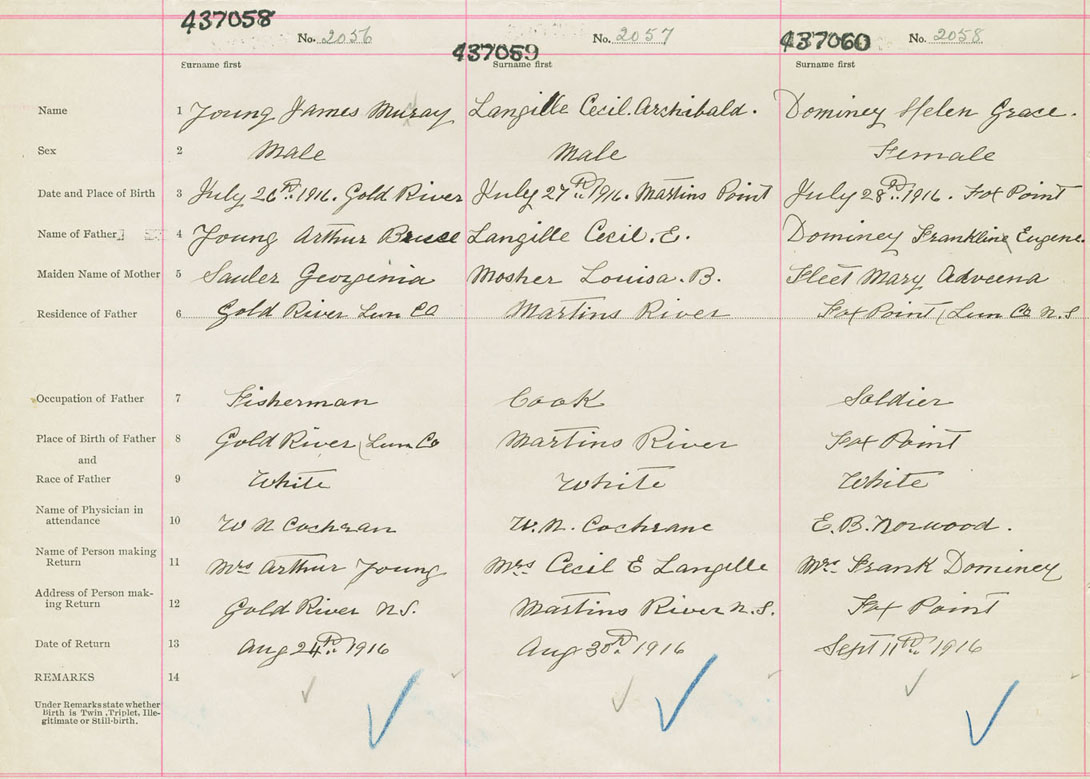 437058 No. 2056 437059 No. 2057 437060 No. 2058
Surname first Surname first Surname first
Name 1 Young James Murray Langille Cecil. Archibald. Dominey Helen Grace.
Sex 2 Male Male Female
Date and Place of Birth 3 July 26th. 1916. Gold River July 27th. 1916. Martins Point July 28th. 1916. Fox Point
Name of Father 4 Young Arthur Bruce Langille Cecil. E. Dominey Frankline Eugene.
Maiden Name of Mother 5 Sauler Georginia Mosher Louisa. B. Fleet Mary Adveena
Residence of Father 6 Gold River Lun Co Martins River Fox Point (Lun Co N.S
Occupation of Father 7 Fisherman Cook Soldier
Place of Birth of Father 8 Gold River (Lun Co Martins River Fox Point
and
Race of Father 9 White White White
Name of Physician in
attendance 10 W N Cochran W. N. Cochrane E. B. Norwood.
Name of Person making
Return 11 Mrs Arthur Young Mrs Cecil E Langille Mrs. Frank Dominey
Address of Person mak-
ing Return 12 Gold River N.S. Martins River N.S. Fox Point
Date of Return 13 Aug 24th. 1916 Aug 30th. 1916 Sept 11th. 1916
REMARKS 14
Under Remarks state whether
Birth is Twin, Triplet, Ille-
gitimate or Still-birth.